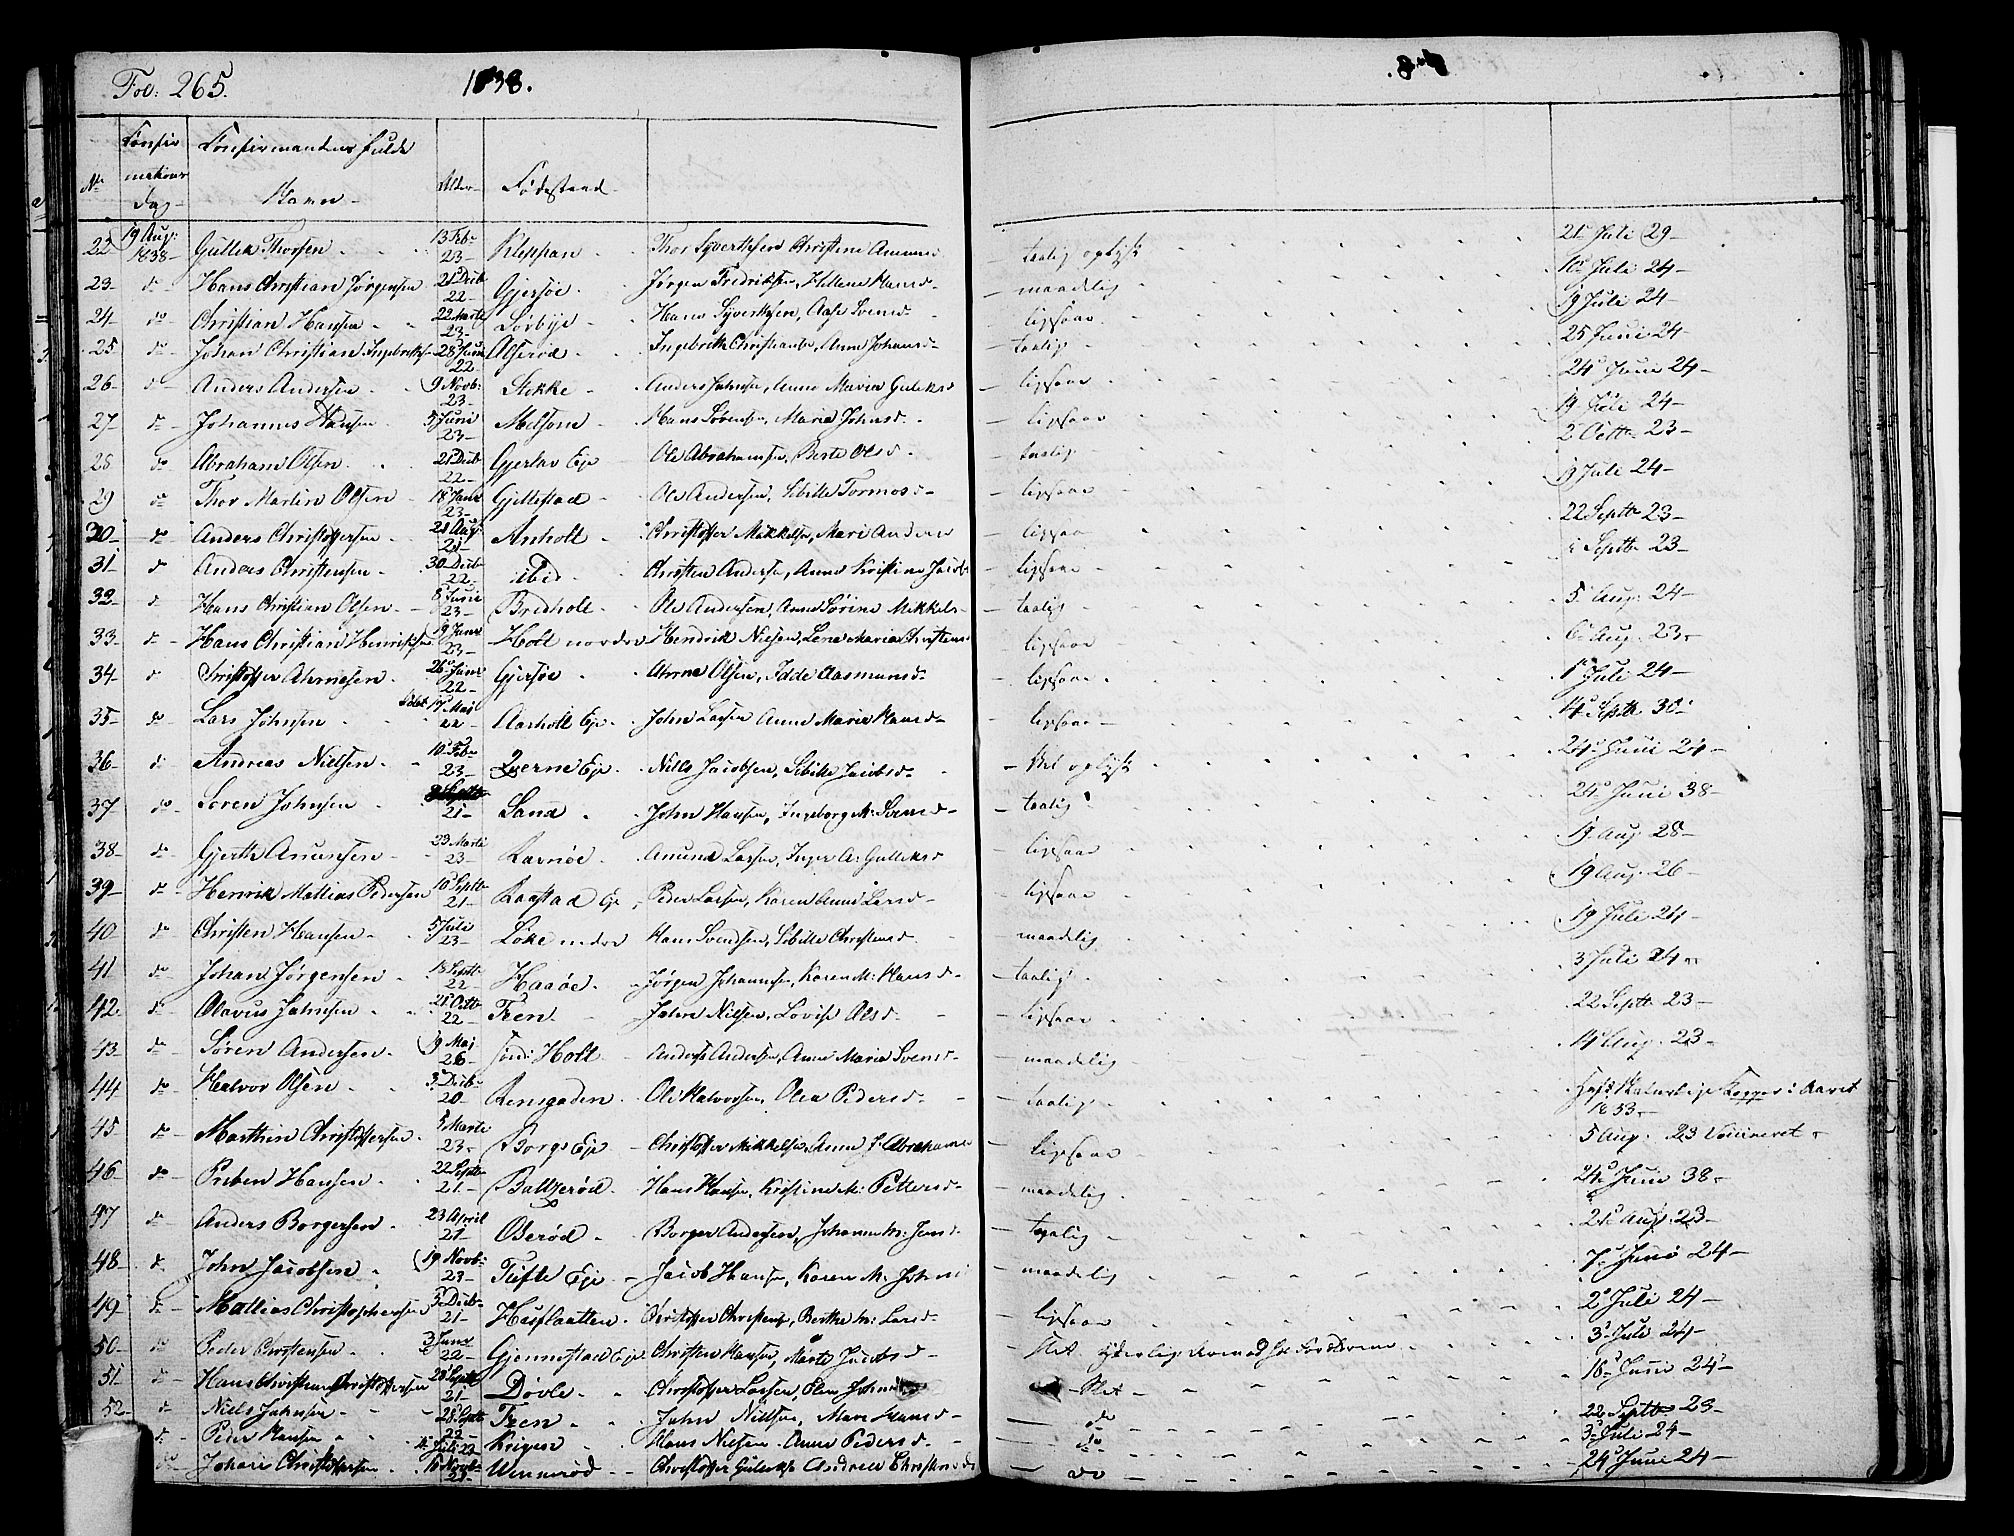 Fol: 265. 1838.
No Confir- Confirmandens fulde
mations Alder Fødested
dag Navn
22 19 Aug: 1838 Gullik Thorsen 13 Feb 23 Kleppan Thor Syvertsen Christine Amunds taalig oplyst 21 Juli 29
23 do Hans Christian Jørgensen 21 Decb 22 Gjersøe Jørgen Fredriksen, Helene Hansd maadelig 10 Juli 24
24 do Christian Hansen 22 Marts 23 Sørbye Hans Syvertsen, Aase Svensd ligesaa 19 Juli 24
25 do Johan Christian Ingebriktsen 28 Juni 22 Olserød Ingebrikt Christiansen, Anne Johansd taalig 25 Juni 24
26 do Anders Andersen 9 Novb: 23 Stokke Anders Johnsen, Anne Maria Guleksd ligesaa 24 Juni 24
27 do Johannes Hansen 5 Juni 23 Melsom Hans Sørensen, Maria Johnsd ligesaa 19 Juli 24
28 do Abraham Olsen 21 Decb 22 Gjerlav Eje Ole Abrahamsen, Berte Olsd taalig 2 Octb 23
29 do Thor Martin Olsen 18 Janr 23 Gjellestad Ole Andersen, Sibille Tormosd ligesaa 9 Juli 24
30 do Anders Christoffersen 21 Aug 21 Arholt Christoffer Mikkelsen, Mari Anders ligesaa 22 Septb 23
31 do Anders Christensen 30 Decb 22 ibid Christen Andersen, Anne Kristine Jacobs ligesaa Septb 23
32 do Hans Christian Olsen 8 Juni 23 Bredholt Ole Andersen, Anne Sørine Mikkels taalig 5 Aug. 24
33 do Hans Christian Henriksen 19 Janr 23 Holt nordre Hendrik Nielsen, Lene Maria Christens ligesaa 6 Aug. 23
34 do Christoffer Ahrnesen 26 Janr 22 Gjersøe Ahrne Olsen, Idde Aasmunsd ligesaa 1 Juli 24
35 do Lars Johnsen 17 Maj 22 Aasholt Eje John Larsen Anne Maria Hansd ligesaa 14 Septb 30
36 do Andreas Nielsen 10 Feb 23 Qverne Eje Niels Jacobsen, Sibille Jacobsd vel oplyst 24 Juni 24
37 do Søren Johnsen Septb 21 Sand John Hansen, Ingeborg M: Svensd taalig 24 Juni 38
38 do Gjerth Anunsen 23 Marts 23 Ravnøe Anund Larsen, Inger A: Gulleksd ligesaa 19 Aug. 28
39 do Henrik Mathias Pedersen 10 Septb 21 Raastad Eje Peder Larsen, Karen Anne Larsd ligesaa 19 Aug. 26
40 do Christen Hansen 5 Juli 23 Løke nedre Hans Svendsen, Sibille Christensd maadelig 19 Juli 24
41 do Johan Jørgensen 13 Septb 22 Haaøe Jørgen Johannesen, Karen M: Hansd taalig 3 Juli 24
42 do Olavus Johnsen 21 Octb 22 Fren John Nielsen, Lovise Olsd ligesaa 22 Septb 23
43 do Søren Andersen 19 Maj 26 sønd: Holt Anders Andersen, Anne Maria Svensd maadelig 14 Aug. 23
44 do Halvor Olsen 3 Decb 20 Rensgaden Ole Halvorsen, Olea Pedersd taalig Havt Naturlige Kopper i Aaret
1833
45 do Marthin Christoffersen 5 Marts 23 Borge Eje Christoffer Mikkelsen, Anne J: Abrahams ligesaa 5 Aug. 23 Vacineret
46 do Preben Hansen 22 Septb 21 Baltzerød Hans Hansen, Kristine M: Pettersd maadelig 24 Juni 38
47 do Anders Borgersen 23 April 21 Oserød Borger Andersen, Johanne M: Jensd taalig 21 Aug. 23
48 do John Jacobsen 19 Novb: 23 Tufte Eje Jacob Hansen, Karen M: Johns maadelig 7 Juni 24
49 do Mathias Christophersen 3 Decb 21 Huslaatten Christoffer Christens, Berthe M: Larsd ligesaa 2 Juli 24
50 do Peder Christensen 3 Janr 22 Gjennestad Eje Christen Hansen, Marte Jacobsd slet 3 Juli 24
51 do Hans Christian Christoffersen 28 Septb 21 Døvle Christoffer Larsen, Elen Johns Slet 18 Juni 24
52 Niels Johnsen 28 Septb 22 Fren John Nielsen, Mari Hansd do 22 Septb 23
do Peder Hansen 4 Juli 23 Krigen Hans Nielsen, Anne Pedersd do 3 Juli 24
do Johan Christoffersen 16 Novb 23 Winnerød Christoffer Gulleks Andrea Christensd do 24 Juni 24